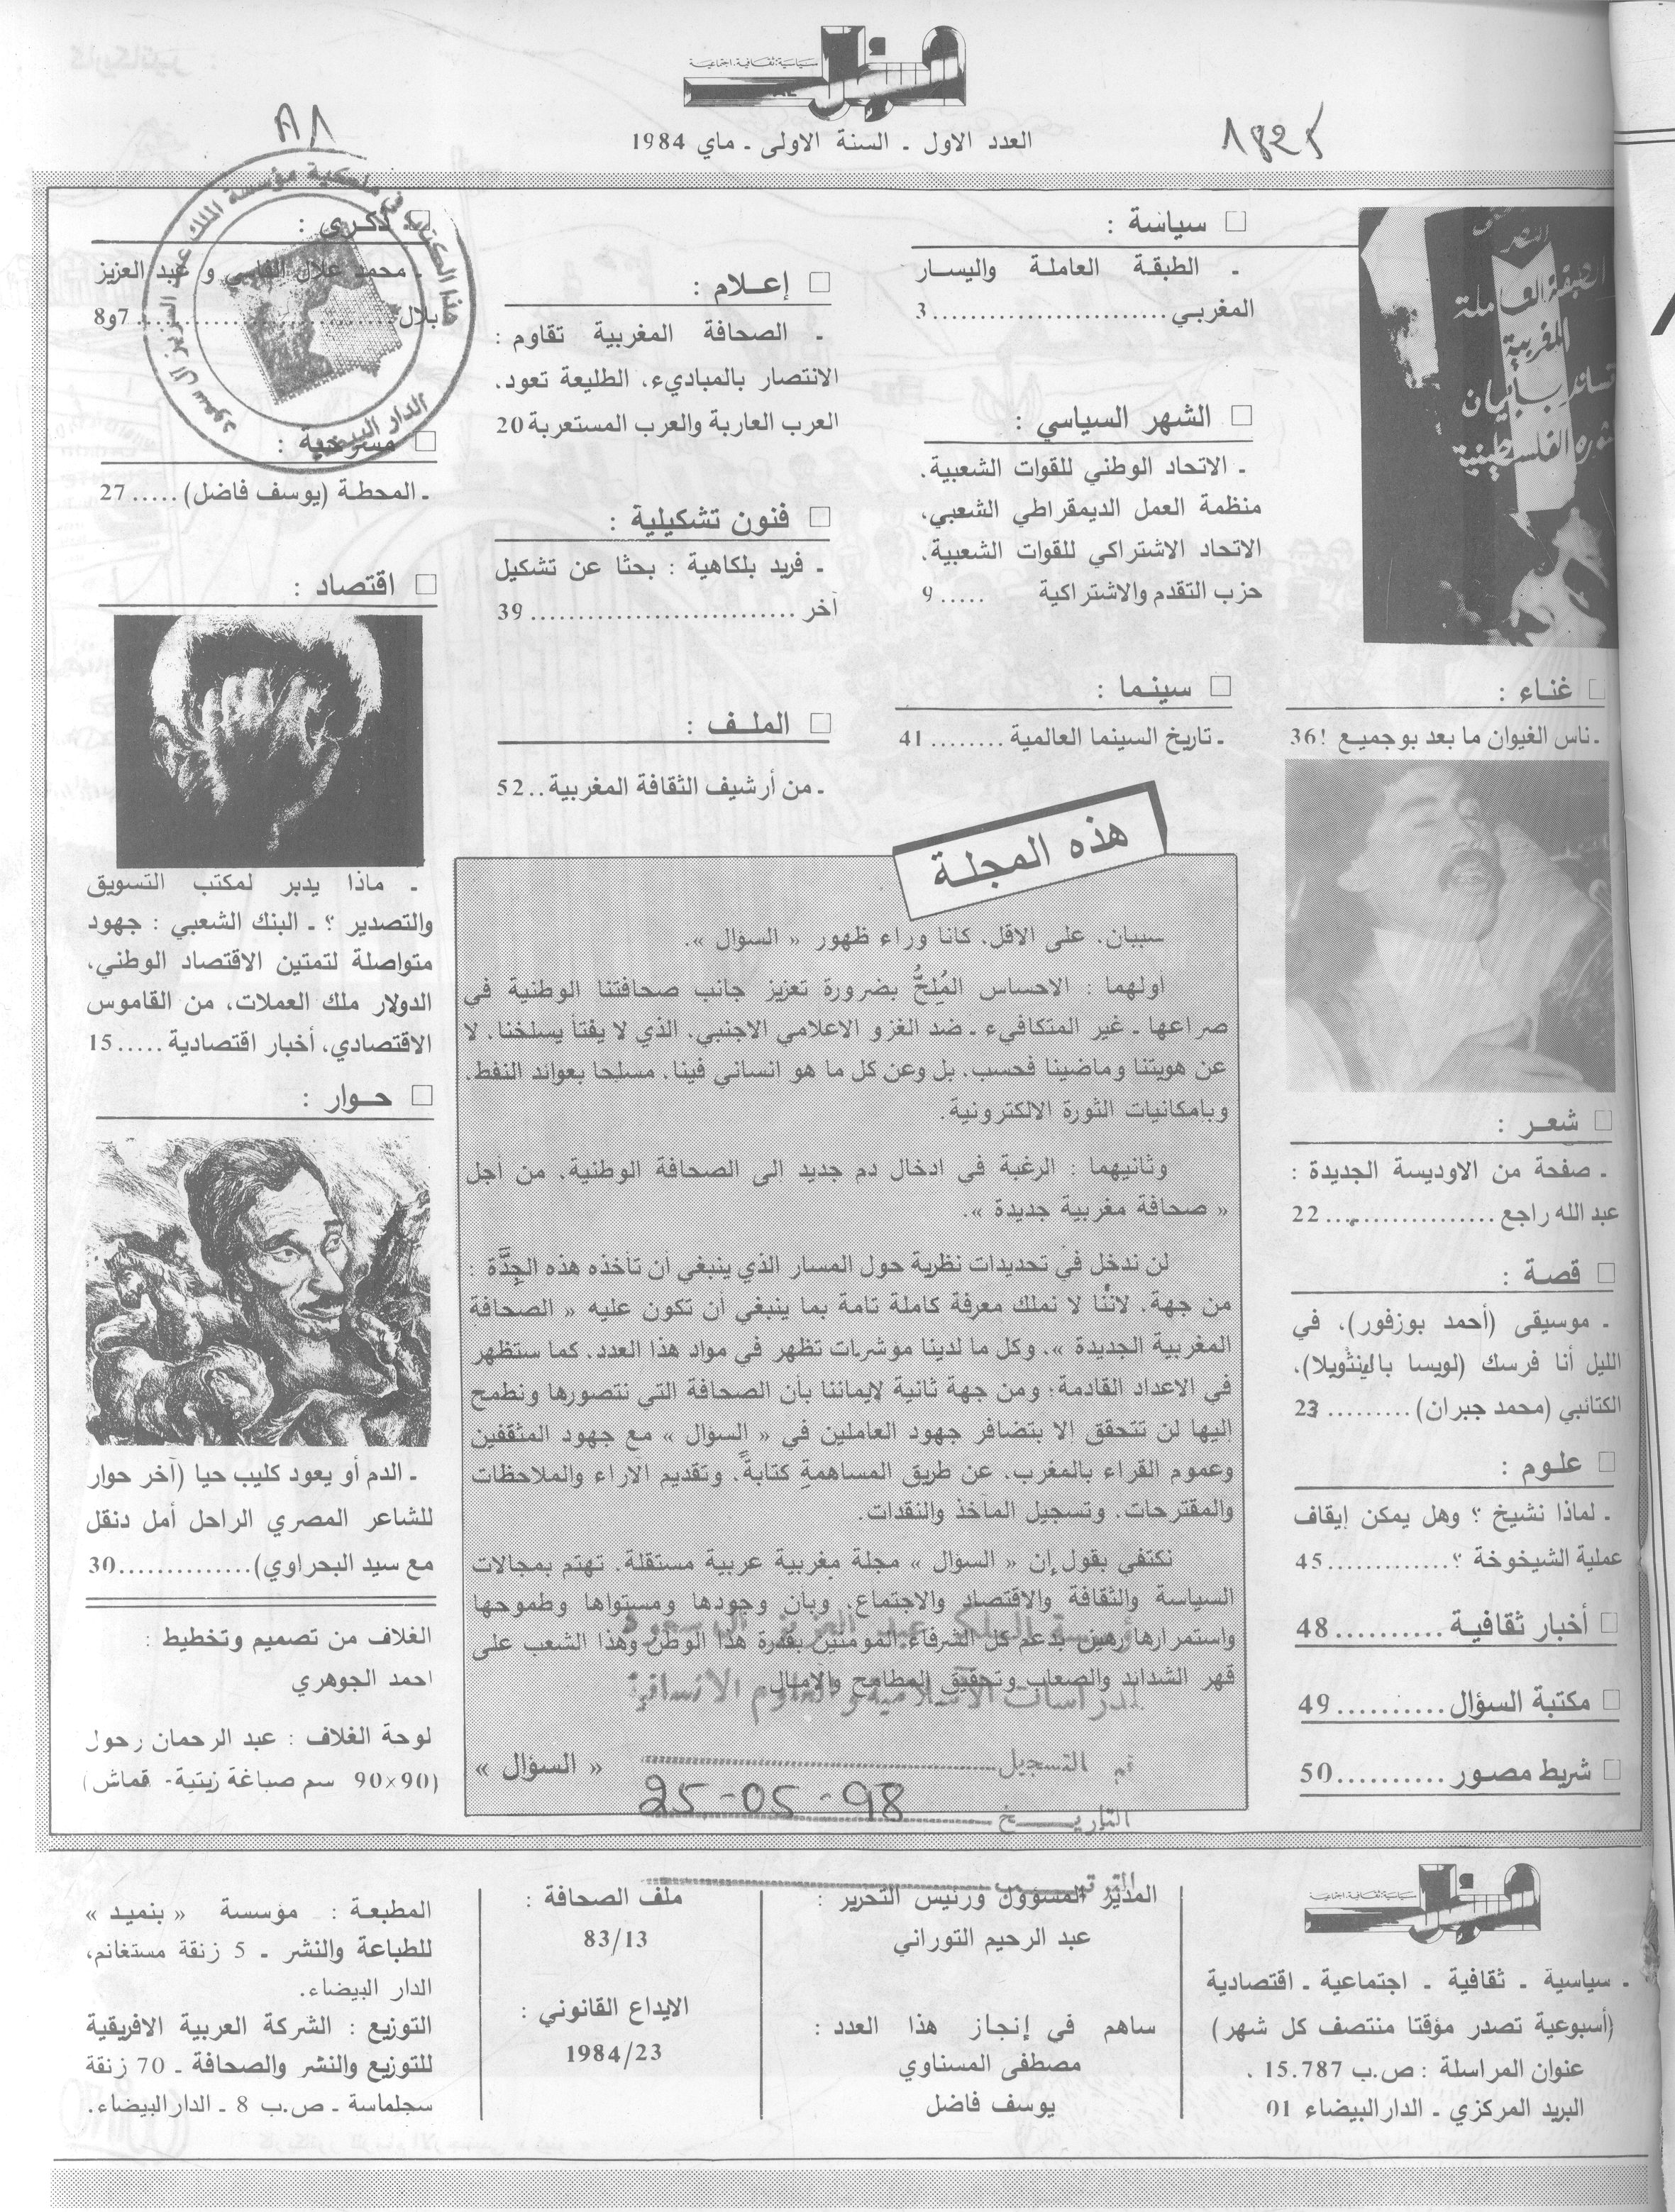 سياسية. ثقافية. اجتماعية
العدد الاول ـ السنة الاولى ـ ماي 1984
1825
سياسة :
ـ الطبقة العاملة واليسار
المغربي ........................ 3
الشهر السياسي :
ـ الاتحاد الوطني للقوات الشعبية،
منظمة العمل الديمقراطي الشعبي،
الاتحاد الاشتراكي للقوات الشعبية،
حزب التقدم والاشتراكية ..... 9
سينما :
ـ تاريخ السينما العالمية ........ 41
الطبقة العاملة
المغربية
تساند
الفلسطينية
غناء :
ـ ناس الغيوان ما بعد بوجميع ! 36
شعر :
ـ صفحة من الاوديسة الجديدة :
عبد الله راجع .................. 22
قصة :
ـ موسيقى (أحمد بوزفور)، في
الليل أنا فرسك (لويسا بالينثويلا)،
الكتائبي (محمد جبران) ......... 23
علوم :
ـ لماذا نشيخ ؟ وهل يمكن إيقاف
عملية الشيخوخة ؟ ............. 45
أخبار ثقافية .......... 48
مكتبة السؤال .......... 49
شريط مصور .......... 50
إعلام :
ـ الصحافة المغربية تقاوم :
الانتصار بالمباديء، الطليعة تعود،
العرب العاربة والعرب المستعربة 20
فنون تشكيلية :
ـ فريد بلكاهية : بحثا عن تشكيل
آخر ............................ 39
الملف :
ـ من أرشيف الثقافة المغربية .. 52
ذكرى :
ـ محمد علال الفاسي و عبد العزيز
بلال ........................... 7و8
مسرحية :
ـ المحطة (يوسف فاضل) ..... 27
هذا الكتاب في ملكية مؤسسة الملك عبد العزيز آل سعود
الدار البيضاء
اقتصاد :
ـ ماذا يدبر لمكتب التسويق
والتصدير ؟ ـ البنك الشعبي : جهود
متواصلة لتمتين الاقتصاد الوطني،
الدولار ملك العملات، من القاموس
الاقتصادي، أخبار اقتصادية ..... 15
حوار :
ـ الدم أو يعود كليب حيا (آخر حوار
للشاعر المصري الراحل أمل دنقل
مع سيد البحراوي) .............. 30
الغلاف من تصميم وتخطيط :
احمد الجوهري
لوحة الغلاف : عبد الرحمان رحول
(90×90 سم صباغة زيتية- قماش)
هذه المجلة
سببان، على الاقل، كانا وراء ظهور « السؤال ».
أولهما : الاحساس المُلِحُّ بضرورة تعزيز جانب صحافتنا الوطنية في
صراعها ـ غير المتكافيء ـ ضد الغزو الاعلامي الاجنبي، الذي لا يفتأ يسلخنا، لا
عن هويتنا وماضينا فحسب، بل وعن كل ما هو انساني فينا، مسلحا بعوائد النفط،
وبإمكانيات الثورة الالكترونية.
وثانيهما : الرغبة في ادخال دم جديد الى الصحافة الوطنية، من أجل
« صحافة مغربية جديدة ».
لن ندخل في تحديدات نظرية حول المسار الذي ينبغي أن تأخذه هذه الجِدَّة :
من جهة، لأننا لا نملك معرفة كاملة تامة بما ينبغي أن تكون عليه « الصحافة
المغربية الجديدة »، وكل ما لدينا مؤشرات تظهر في مواد هذا العدد، كما ستظهر
في الاعداد القادمة؛ ومن جهة ثانية لايماننا بأن الصحافة التي نتصورها ونطمح
إليها لن تتحقق إلا بتضافر جهود العاملين في « السؤال » مع جهود المثقفين
وعموم القراء بالمغرب، عن طريق المساهمة كتابةً، وتقديم الآراء والملاحظات
والمقترحات، وتسجيل المآخذ والنقدات.
نكتفي بقول إن « السؤال » مجلة مغربية عربية مستقلة، تهتم بمجالات
السياسة والثقافة والاقتصاد والاجتماع، وبان وجودها ومستواها وطموحها
واستمرارها رهين بدعم كل الشرفاء المومنين بقدرة هذا الوطن وهذا الشعب على
قهر الشدائد والصعاب وتحقيق المطامح والامال.
« السؤال »
مؤسسة الملك عبد العزيز آل سعود
للدراسات الاسلامية والعلوم الانسانية
رقم التسجيل
التاريــــخ 25-05-98
الترتيب
سياسية. ثقافية. اجتماعية
ـ سياسية ـ ثقافية ـ اجتماعية ـ اقتصادية
(أسبوعية تصدر مؤقتا منتصف كل شهر)
عنوان المراسلة : ص.ب 15.787 .
البريد المركزي ـ الدار البيضاء 01
المدير المسؤول ورئيس التحرير :
عبد الرحيم التوراني
ساهم في إنجاز هذا العدد :
مصطفى المسناوي
يوسف فاضل
ملف الصحافة :
83/13
الايداع القانوني :
1984/23
المطبعة : مؤسسة « بنميد »
للطباعة والنشر ـ 5 زنقة مستغانم،
الدار البيضاء.
التوزيع : الشركة العربية الافريقية
للتوزيع والنشر والصحافة ـ 70 زنقة
سجلماسة ـ ص.ب 8 ـ الدار البيضاء.